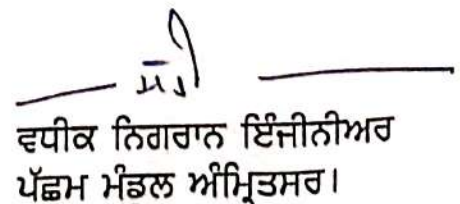 ਸਹੀ
ਵਧੀਕ ਨਿਗਰਾਨ ਇੰਜੀਨੀਅਰ
ਪੱਛਮ ਮੰਡਲ ਅੰਮ੍ਰਿਤਸਰ।